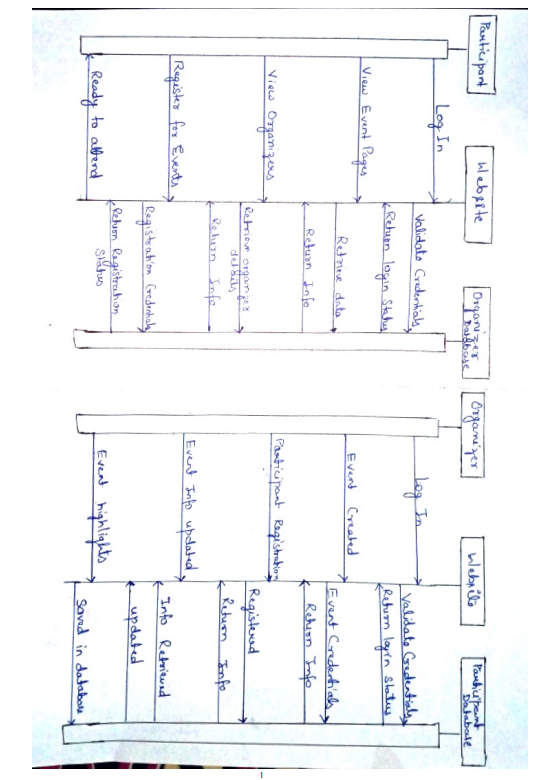 Participant
Website
Organizer
Database
Log In
Validate Credentials
Return login Status
View Event Pages
Retrieve data
Return Info
View Organizers
Retrieve organizer
details
Return Info
Register for Events
Registration Credentials
Return Registration
Status
Ready to attend
Organizer
Website
Participant
Database
Log In
Validate Credentials
Return login Status
Event Created
Event Credentials
Return Info
Participant Registration
Registered
Return Info
Event Info updated
Info Retrieved
updated
Event highlights
Saved in database